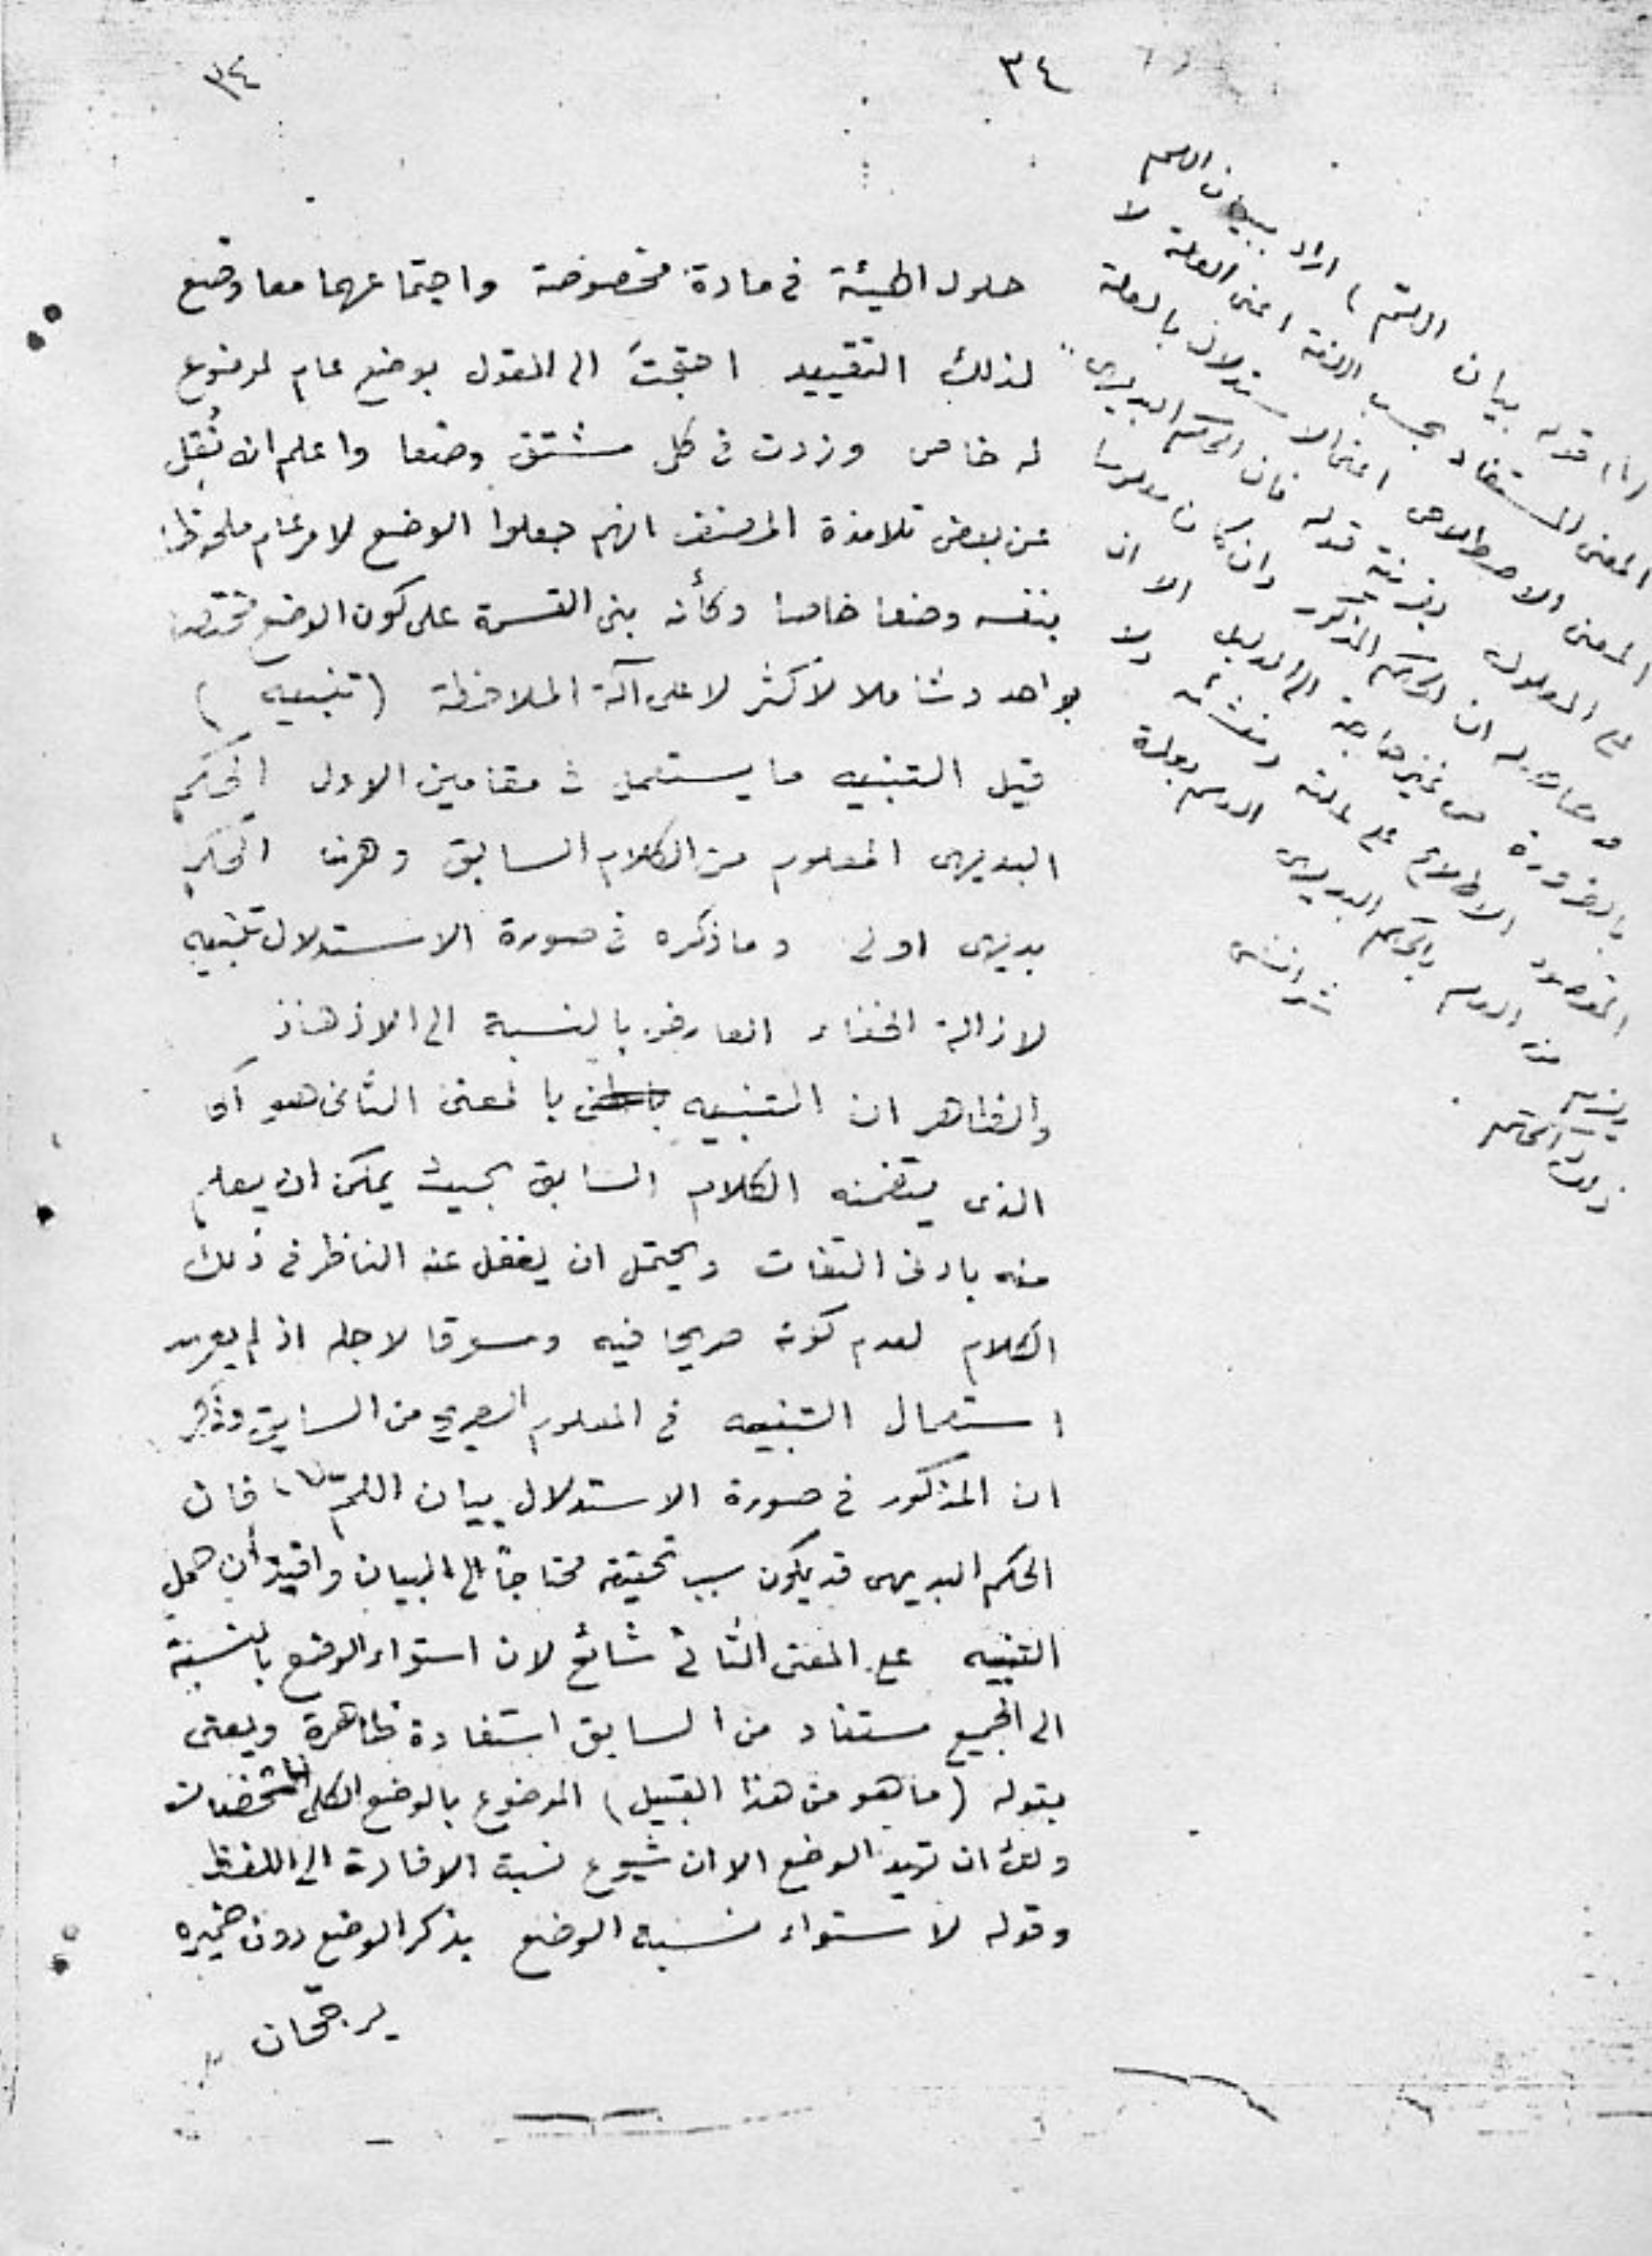 ٣٤
٣٤
حلول الهيئة في مادة مخصوصة واجتماعهما معا وضع
لذلك التقييد احتجت الى القول بوضع عام لموضوع
له خاص وزدت في كل مشتق وضعا واعلم انه نُقل
عن بعض تلامذة المصنف انهم جعلوا الوضع لامر عام ملحوظ
بنفسه وضعا خاصا وكأنه بنى القسمة على كون الوضع مختصا
بواحد وشاملا لاكثر لا على آلة الملاحظة (تنبيه)
قيل التنبيه ما يستعمل في مقامين الاول الحكم
البديهى المعلوم من الكلام السابق وهنا الحكم
بديهى اولى وما ذكره في صورة الاستدلال تنبيه
لازالة الخفاء العارض بالنسبة الى الاذهان
والظاهر ان التنبيه بالمعنى الثانى هو
الذى يتضمنه الكلام السابق بحيث يمكن ان يعلم
منه بادنى التفات ويحتمل ان يغفل عنه الناظر في ذلك
الكلام لعدم كونه صريحا فيه ومسوقا لاجله اذ لم يعهد
استعمال التنبيه في المعلوم الصريح من السابق وذكر
ان المذكور في صورة الاستدلال بيان اللم (١) فان
الحكم البديهى قد يكون سبب تحقيقه محتاجاً الى البيان وافيد أن حمل
التنبيه على المعنى الثانى شائع لان استواء الوضع بالنسبة
الى الجميع مستفاد من السابق استفادة ظاهرة ويعنى
بقوله (ما هو من هذا القبيل) الموضوع بالوضع الكلى للمشخصات
ولك ان تريد الوضع الا ان شيوع نسبة الافادة الى اللفظ
وقوله لاستواء نسبة الوضع بذكر الوضع دون ضميره
يرجحان
(١) قوله بيان اللم) اراد ببيان اللم
المعنى المستفاد بحسب اللغة اعنى العلة لا
المعنى الاصطلاحى اعنى الاستدلال بالعلة
على المعلول بقرينة قوله فان الحكم البديهى
وحاصله ان الحكم المذكور وان كان معلوما
بالضرورة من غير حاجة الى الدليل الا ان
المقصود الاطلاع على لميته ومنشئه ولا
يلزم من العلم بالحكم البديهى العلم بعلة
ذلك الحكم